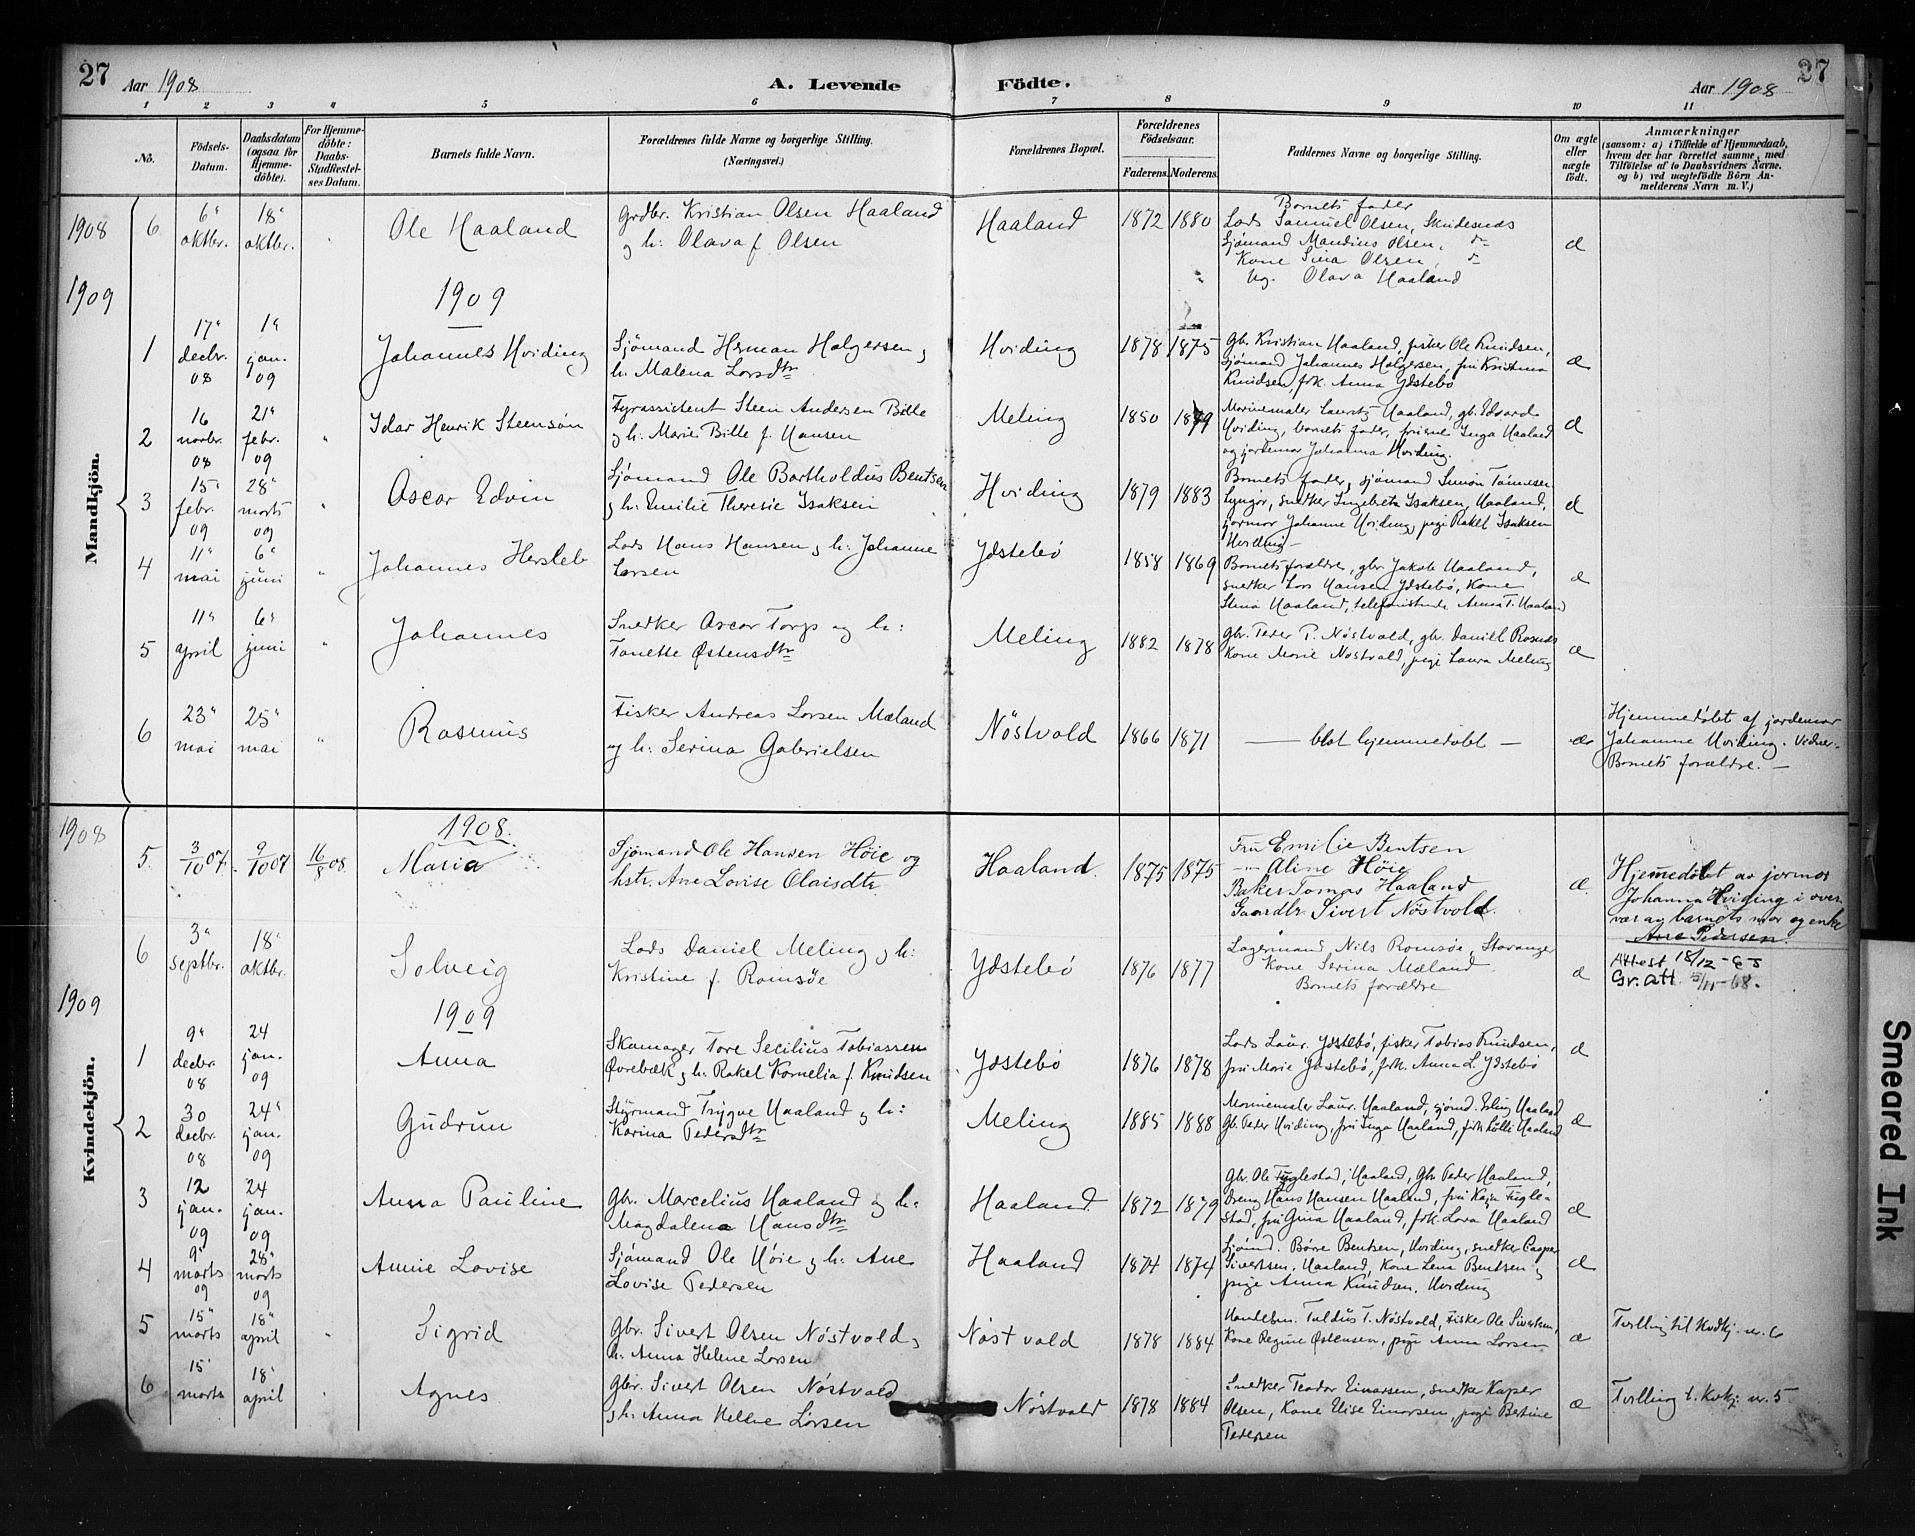 27
Aar 1908
A. Levende
Födte.
Aar 1908
27
1 2 3 4 5 6 7 8 9 10 11
No.
Födsels-
Datum.
Daabsdatum
(ogsaa for
Hjemme-
döbte).
For Hjemme-
döbte:
Daabs-
Stadfæstel-
ses Datum.
Barnets fulde Navn.
Forældrenes fulde Navne og borgerlige Stilling.
(Næringsvei.)
Forældrenes Bopæl.
Forældrenes
Födselsaar.
Faderens. Moderens.
Faddernes Navne og borgerlige Stilling.
Om ægte
eller
uægte
födt.
Anmærkninger
(saasom: a) i Tilfælde af Hjemmedaab,
hvem der har forrettet samme, med
Tilföielse af to Daabsvidners Navne.
og b) ved uægtefödte Börn An-
melderens Navn m. V.)
Mandkjön.
1908
6
6' oktbr.
18' oktbr.
Ole Haaland
Grdbr. Kristian Olsen Haaland
og h: Olava f. Olsen
Haaland
1872 1880
Barnets fader
Lods Samuel Olsen, Skudesnæs
Sjömand Olsen,
Kone Olsen
Ug. Olava Haaland
1909
1909
1
17' decbr. 08
1' jan. 09
Johannes Hviding
Sjömand Herman Holgersen og
h. Malena Larsdtr
Hviding
1878 1875
Gb. Kristian Haaland, fisker Ole Knudsen,
sjömand Johannes Holgersen, fru Kristina
Knudsen, frk. Anna Ydstebö
æ
2
16 novbr. 08
21' febr. 09
Idar Henrik Steensön
Fyrassistent Steen Andersen Bille
og h: Marie Bille f. Hansen
Meling
1850 1879
Marinemaler Lauritz Haaland, gb. Edvard
Hviding, barnets fader, fruene Inga Haaland
og jordemor Johanna Hviding.
3
15' febr. 09
28' marts 09
Oscar Edvin
Sjömand Ole Bartholdus Bentsen
og h: Emilie Theresie Isaksen
Hviding
1879 1883
Barnets fader, sjömand Simon Tönnesen
Lyngör, snedker Isaksen, Haaland,
jormor Johanne Hviding, pige Rakel Isaksen
Hviding
4
11' mai
6' juni
Johannes Hersleb
Lods Hans Hansen og h: Johanne
Larsen
Ydstebö
1858 1869
Barnets forældre, gbr. Jakob Haaland,
snedker Lars Hansen Ydstebö, Kone
Stina Haaland, telefonistinde Anna T. Haaland
æ
5
11' april
6' juni
Johannes
Snedker Oscar Torp og h:
Tanette Östensdtr
Meling
1882 1878
Gbr. Peder P. Nöstvold, gbr. Daniel
Kone Marie Nöstvold, pige Laura Meling
æ
6
23' mai
25' mai
Rasmus
Fisker Andreas Larsen Mæland
og h: Serina Gabrielsen
Nöstvold
1866 1871
— blot hjemmedöbt —
æ
Hjemmedöbt af jordemor
Johanne Hviding. Vidner:
Barnets forældre. —
Kvindekjön.
1908
1908.
5.
3/10 07.
9/10 07
16/8 08.
Maria
Sjömand Ole Hansen Höie og
hstr. Ane Lovise Olaisdtr
Haaland.
1875 1875
Fru Emilie Bentsen
— Aline Höie
Baker Tomas Haaland
Gaardbr. Sivert Nöstvold.
æ.
Hjemedöbt av jormor
Johanna Hviding i over-
vær av barnets mor og enke
Ane Pedersen.
6
3' septbr.
18' oktbr.
Solveig
Lods Daniel Meling og h:
Kristine f. Romsöe
Ydstebö
1876 1877
Lagermand Nils Romsöe, Stavanger
Kone Serina Mæland
Barnets forældre
æ
Attest 18/12-
Gr. att. -68.
1909
1909
1
9' decbr. 08
24 jan. 09
Anna
Skomager Tore Secilius Tobiassen
Övrebæk og h: Rakel Kornelia f. Knudsen
Ydstebö
1876 1878
Lods Laur. Ydstebö, fisker Tobias Knudsen,
fru Marie Ydstebö, frk. Anna L. Ydstebö
æ
2
30 decbr. 08
24' jan. 09
Gudrun
Styrmand Trygve Haaland og h:
Karina Pedersdtr
Meling
1885 1888
Marinemaler Laur. Haaland, sjömd. Haaland
Gb. Peder Hviding, fru Inga Haaland, frk. Haaland
æ
3
12 jan. 09
24 jan. 09
Anna Pauline
Gbr. Marcelius Haaland og h:
Magdalena Hansdtr
Haaland
1872 1879
Gbr. Ole Fuglestad, Haaland, Gbr. Peder Haaland,
Dreng Hans Hansen Haaland, fru Fugle-
stad, fru Gina Haaland, frk. Lava Haaland
æ
4
9' marts 09
28' marts 09
Annie Lovise
Sjömand Ole Höie og h: Ane
Lovise Pedersen
Haaland
1874 1874
Sjömd. Börre Bentsen, Hviding, snedker Casper
Sivertsen, Haaland, Kone Lena Bentsen og
pige Anna Knudsen, Hviding
æ
5
15' marts
18' april
Sigrid
Gbr. Sivert Olsen Nöstvold og
h: Anna Helene Larsen
Nöstvold
1878 1884
T. Nöstvold, Fisker Ole Sivertsen,
Kone Regine Östensen, pige Anna Larsen
æ
Tvilling til Kvdkj. nr. 6
6
15' marts
18' april
Agnes
Gbr. Sivert Olsen Nöstvold
og h: Anna Helene Larsen
Nöstvold
1878 1884
Snedker Teodor Einarsen, snedker Kasper
Olsen, Kone Elise Einarsen, pige Bertine
Pedersen
æ
Tvilling t. Kvkj. nr. 5
Smeared Ink